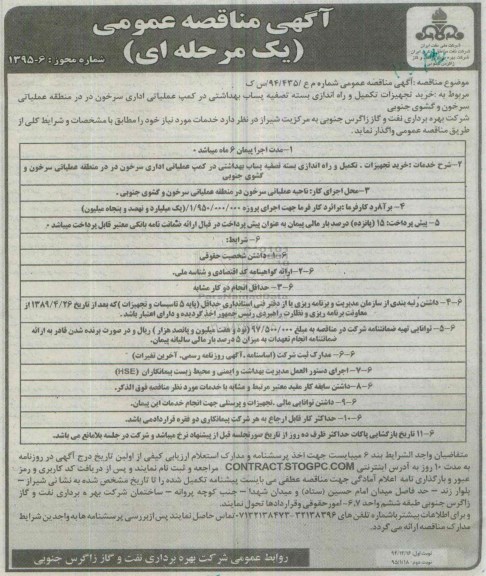 آگهی مناقصه عمومی
(یک مرحله ای)
شماره مجوز: ۶-۱۳۹۵
موضوع مناقصه: آگهی مناقصه عمومی شماره م ع /۹۴/۴۳۵/س ک
مربوط به: خرید تجهیزات تکمیل و راه اندازی بسته تصفیه پساب بهداشتی در کمپ عملیاتی اداری سرخون در در منطقه عملیاتی
سرخون و گشوی جنوبی
شرکت بهره برداری نفت و گاز زاگرس جنوبی به مرکزیت شیراز در نظر دارد خدمات مورد نیاز خود را مطابق با مشخصات و شرایط کلی از
طریق مناقصه عمومی واگذار نماید.
۱-مدت اجرا پیمان ۶ ماه میباشد
۲-شرح خدمات: خرید تجهیزات، تکمیل و راه اندازی بسته تصفیه پساب بهداشتی در کمپ عملیاتی اداری سرخون در در منطقه عملیاتی سرخون و
گشوی جنوبی
۳-محل اجرای کار: ناحیه عملیاتی سرخون در منطقه عملیاتی سرخون و گشوی جنوبی.
۴- برآورد کارفرما: برآورد کار فرما جهت اجرای پروژه ۱/۹۵۰/۰۰۰/۰۰۰ (یک میلیارد و نهصد و پنجاه میلیون)
۵- پیش پرداخت: ۱۵ (پانزده) درصد بار مالی پیمان به عنوان پیش پرداخت در قبال ارائه ضمانت نامه بانکی معتبر قابل پرداخت میباشد.
۶- شرایط:
۶-۱- داشتن شخصیت حقوقی
۶-۲-ارائه گواهینامه کد اقتصادی و شناسه ملی.
۶-۳- حداقل انجام دو کار مشابه
۶-۴- داشتن رتبه بندی از سازمان مدیریت و برنامه ریزی یا از دفتر فنی استانداری حداقل (پایه ۵ تاسیسات و تجهیزات) که بعد از تاریخ ۱۳۸۹/۴/۲۶ از
معاونت برنامه ریزی و نظارت راهبردی رئیس جمهور اخذ گردیده و دارای اعتبار باشد.
۶-۵- توانایی تهیه ضمانتنامه شرکت در مناقصه به مبلغ ۹۷/۵۰۰/۰۰۰ (نود و هفت میلیون و پانصد هزار) ریال و در صورت برنده شدن قادر به ارائه
ضمانتنامه انجام تعهدات به میزان ۵ درصد بار مالی سالیانه پیمان.
۶-۶- مدارک ثبت شرکت (اساسنامه، آگهی روزنامه رسمی، آخرین تغییرات)
۶-۷- اجرای دستور العمل مدیریت بهداشت و ایمنی و محیط زیست پیمانکاران (HSE)
۶-۸- داشتن سابقه کار مفید معتبر مرتبط و مشابه با خدمات مورد نظر مناقصه فوق الذکر.
۶-۹- داشتن توانایی مالی، تجهیزات و پرسنلی جهت انجام خدمات این پیمان.
۶-۱۰- حداکثر کار قابل ارجاع به هر شرکت پیمانکاری دو فقره قراردادمی باشد.
۶-۱۱ تاریخ بازگشایی پاکات حداکثر ظرف ده روز از تاریخ صورتجلسه قبل از پیشنهاد نرخ میباشد و شرکت در جلسه بلامانع می باشد.
متقاضیان واجد الشرایط بند ۶ میبایست جهت اخذ پرسشنامه و مدارک استعلام ارزیابی کیفی از اولین تاریخ درج آگهی در روزنامه
به مدت ۱۰ روز به آدرس اینترنتی CONTRACT.STOGPC.COM مراجعه و ثبت نام نمایند و پس از دریافت کد کاربری و رمز
عبور و بارگذاری نامه اعلام آمادگی جهت مناقصه مطفی می بایست پیشنامه تکمیل شده را تا تاریخ مشخص شده به نشانی شیراز –
بلوار زند – حد فاصل میدان امام حسین (ستاد) و میدان شهدا – جنب کوچه پروانه – ساختمان شرکت بهره برداری نفت و گاز
زاگرس جنوبی طبقه ششم واحد ۶،۷- امور حقوقی وقراردادها تحویل نمایند.
و برای اطلاعات بیشتر باشماره تلفن های ۳۲۱۳۸۳۹۶ -۰۷۱۳۲۱۳۸۴۷۳ تماس حاصل نمایند پس از بررسی پرسشنامه ها به واجدین شرایط
مدارک مناقصه ارائه می گردد.
نوبت اول: ۹۴/۱۲/۱۶
نوبت دوم: ۹۵/۱/۱۸
روابط عمومی شرکت بهره برداری نفت و گاز زاگرس جنوبی